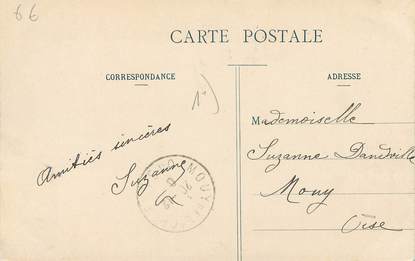 66
CARTE POSTALE
CORRESPONDANCE
ADRESSE
1-
Mademoiselle
Suzanne Dandville
Mouy
Oise
Amitiés sincères
Suzanne
MOUY